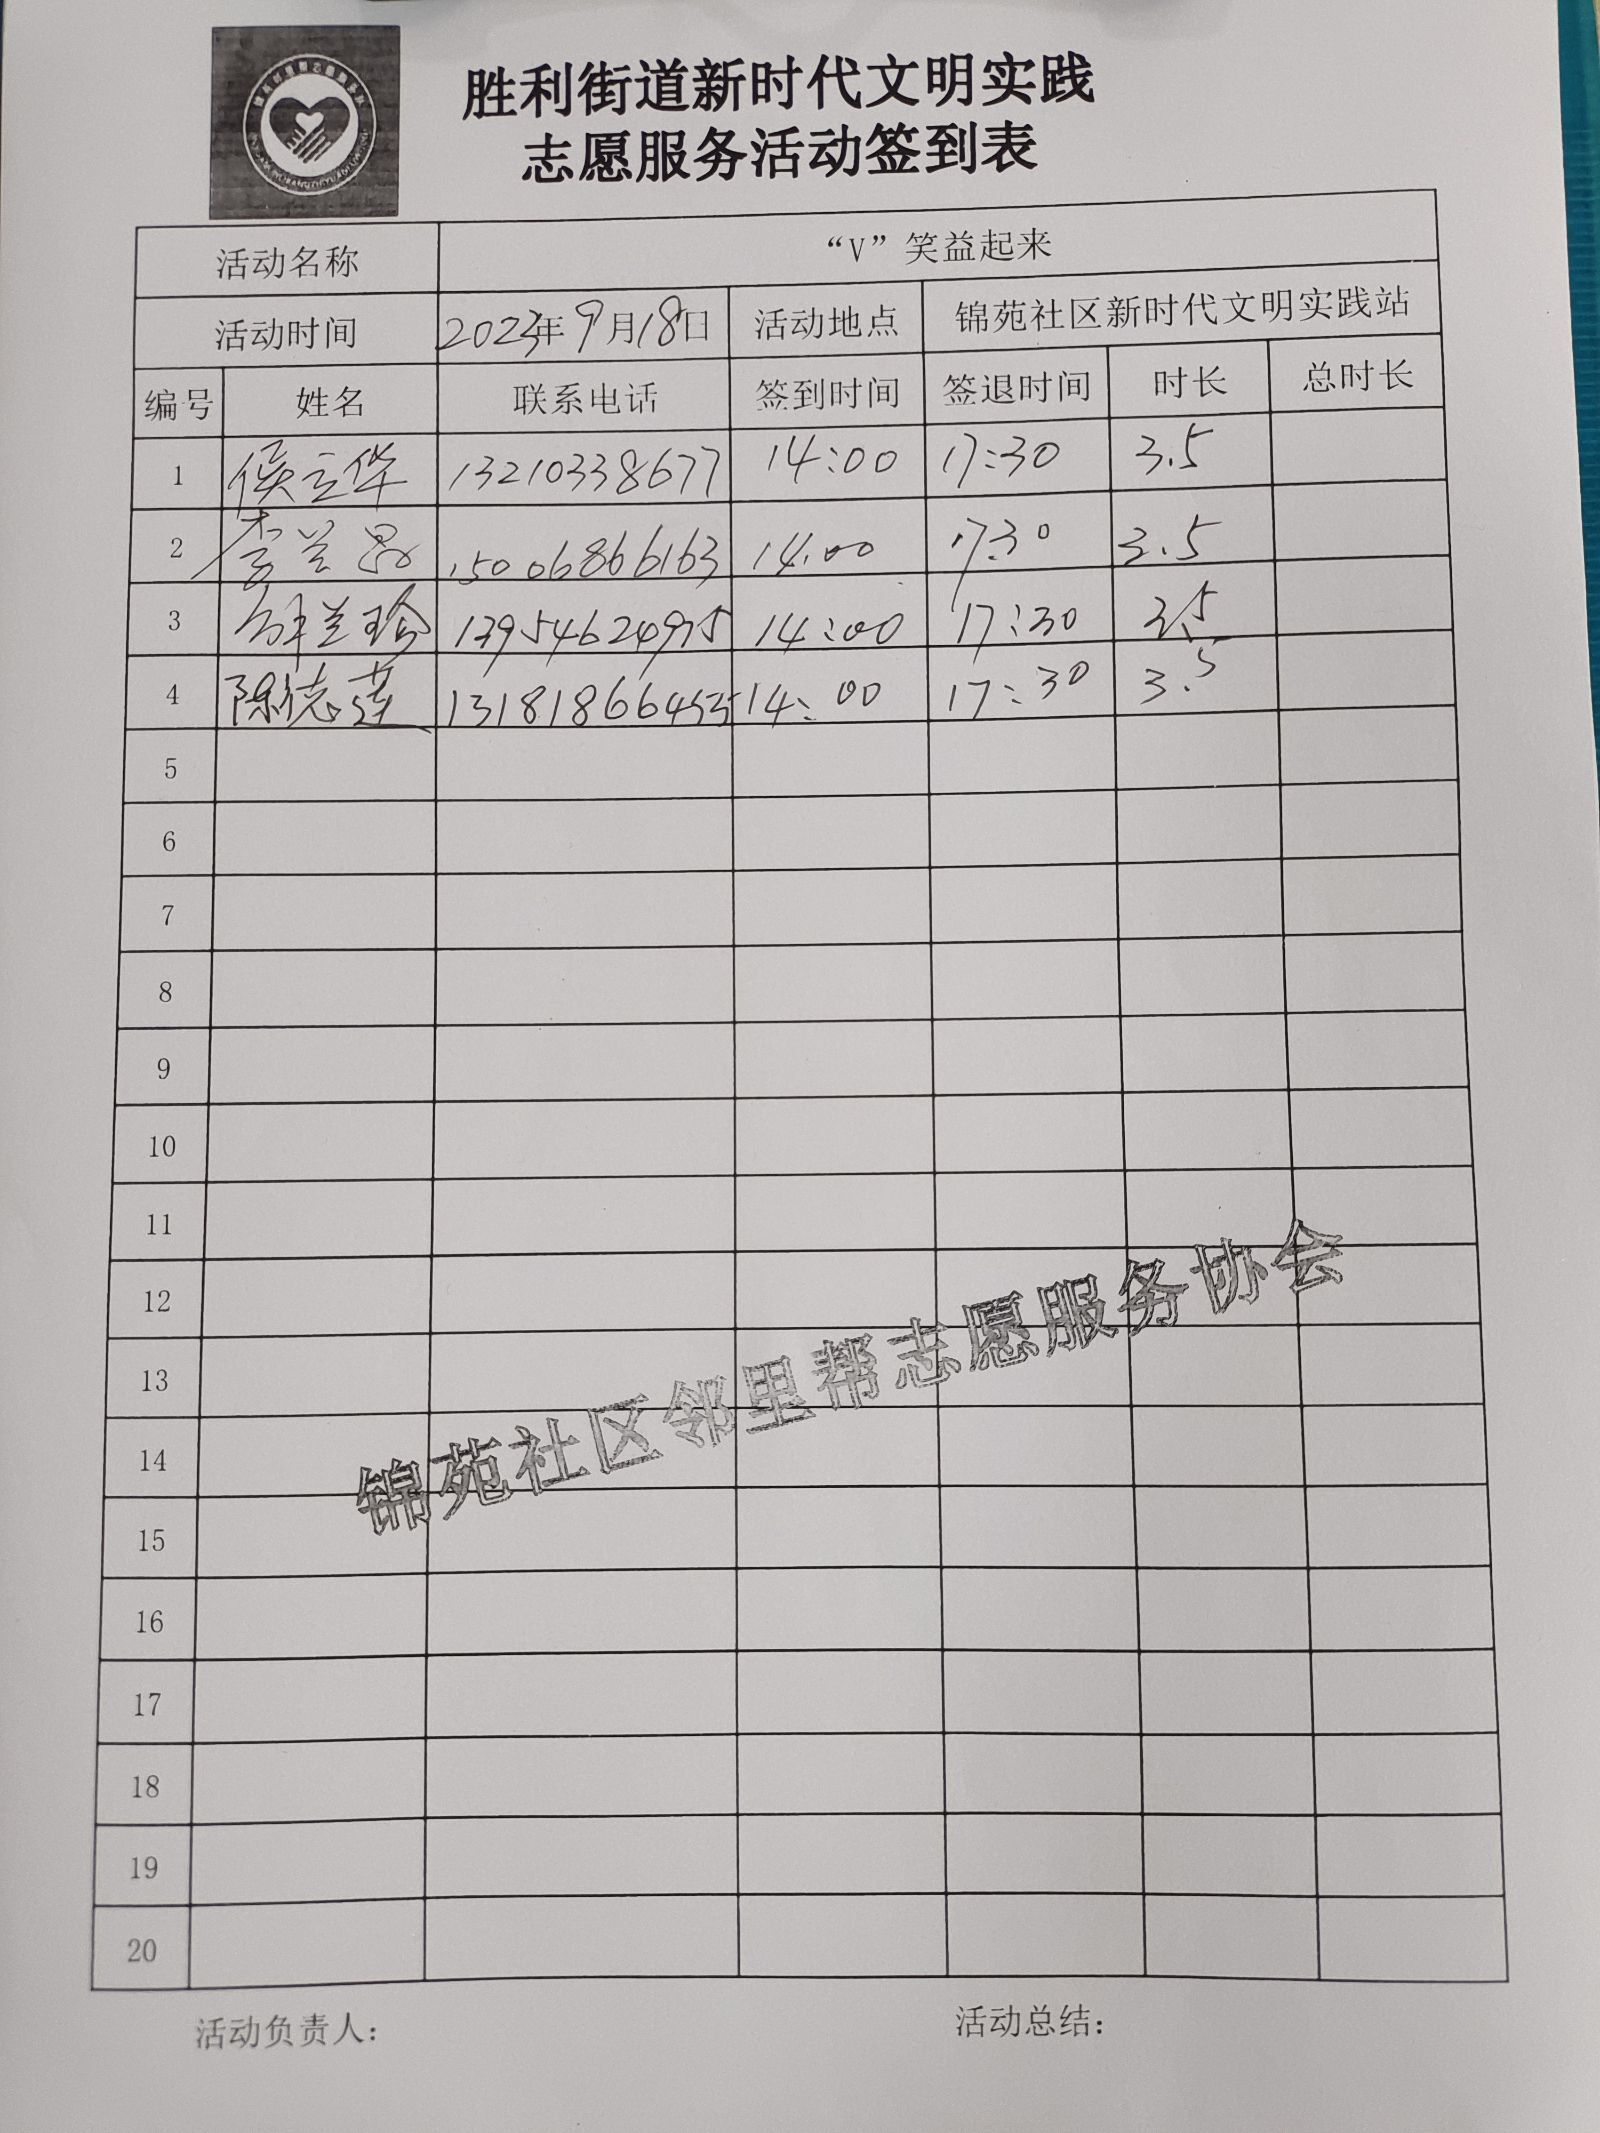 胜利街道新时代文明实践
志愿服务活动签到表
活动名称 “V”笑益起来
活动时间 2023年9月18日 活动地点 锦苑社区新时代文明实践站
编号 姓名 联系电话 签到时间 签退时间 时长 总时长
1 侯立华 13210338677 14:00 17:30 3.5
2 李兰 15006866163 14:00 17:30 3.5
3 兰珍 13954624975 14:00 17:30 3.5
4 陈德莲 14:00 17:30 3.5
5
6
7
8
9
10
11
12
13
14
15
16
17
18
19
20
锦苑社区邻里帮志愿服务协会
活动负责人： 活动总结：